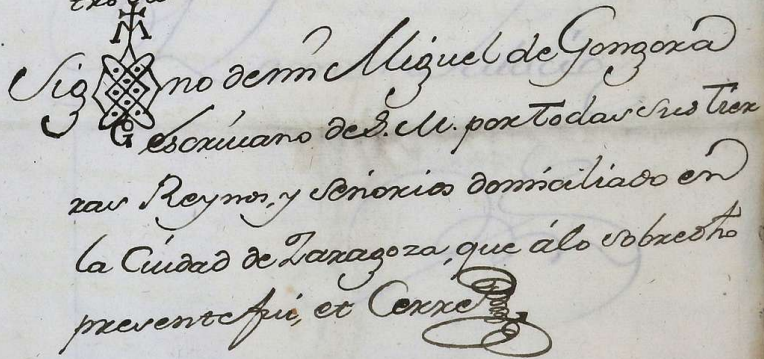 Sig no de mi Miguel de Gongora
escriuano de S. M. por todas sus tier
ras Reynos, y señorios domiciliado en
la Ciudad de Zaragoza, que á lo sobredho
presente fui, et Cerre